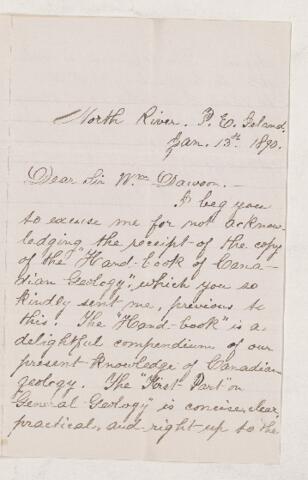 North River. P. E. Island.
Jan. 13th 1890.
Dear Sir Wm Dawson. —
I beg you
to excuse me for not acknow-
ledging the receipt of the copy
of the "Hand-book of Cana-
dian Geology", which you so
kindly sent me, previous to
this. The "Hand-book" is a
delightful compendium of our
present knowledge of Canadian
geology. The "First Part" on
"General Geology" is concise, clear,
practical, and right up to the